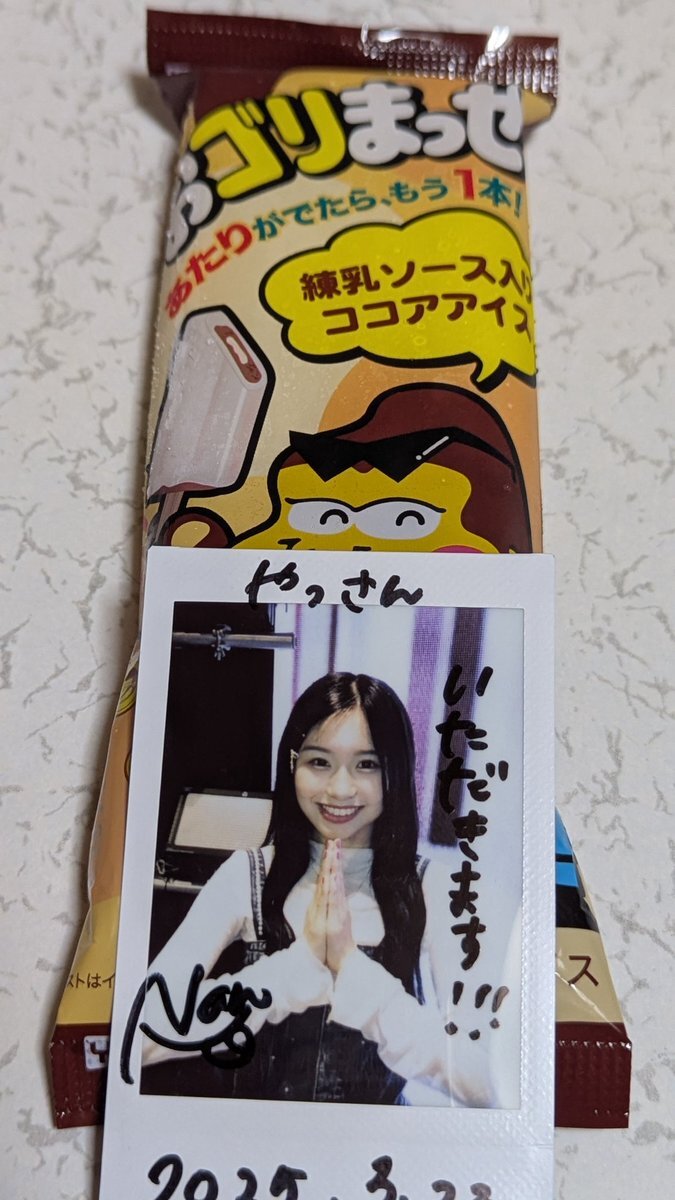 おゴリまっせ
あたりがでたら、もう1本!
練乳ソース入り
ココアアイス
やっさん
いただきます!!!
ストはイ
ス
2025.3.22